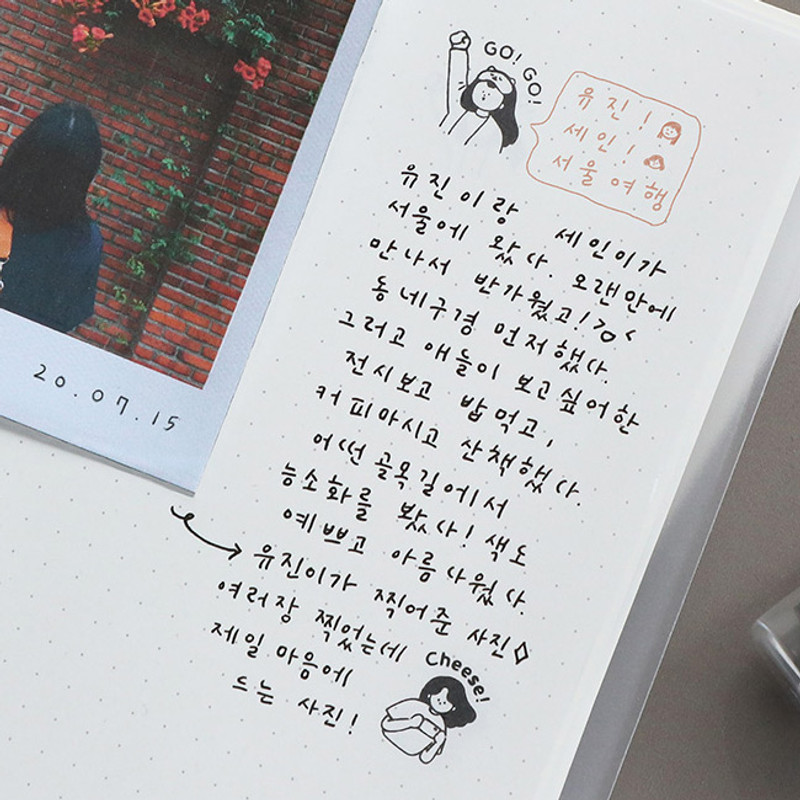 GO! GO!
유진!
세인!
서울여행
유진이랑 세인이가
서울에 왔다. 오랜만에
만나서 반가웠고! >o<
동네구경 먼저했다.
그러고 애들이 보고싶어한
전시보고 밥먹고,
커피마시고 산책했다.
어떤골목길에서
능소화를 봤다! 색도
예쁘고 아름다웠다.
20.07.15
유진이가 찍어준 사진
여러장 찍었는데
제일 마음에
드는 사진!
Cheese!